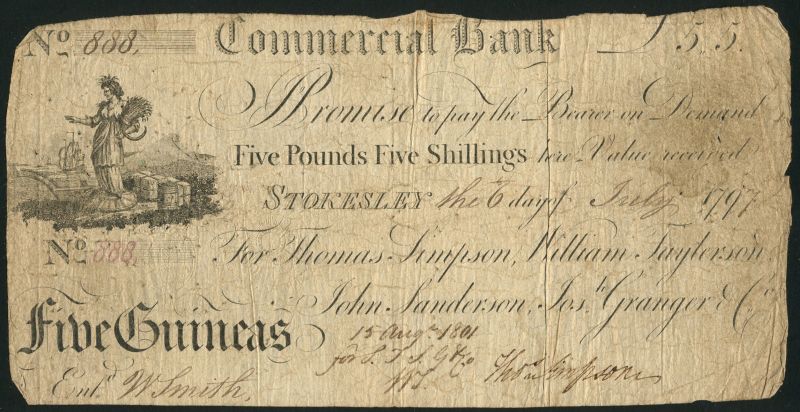 No 888. Commercial Bank £5.5.
I Promise to pay the Bearer on Demand
Five Pounds Five Shillings here Value received
STOKESLEY the 6 day of July 1797
No 888. For Thomas Simpson, William Taylerson
John Sanderson, Josh. Granger & Co.
Five Guineas
15 Augt. 1801
for S. T. S. G & Co
WS.
Thos. Simpson
Entd. W Smith.